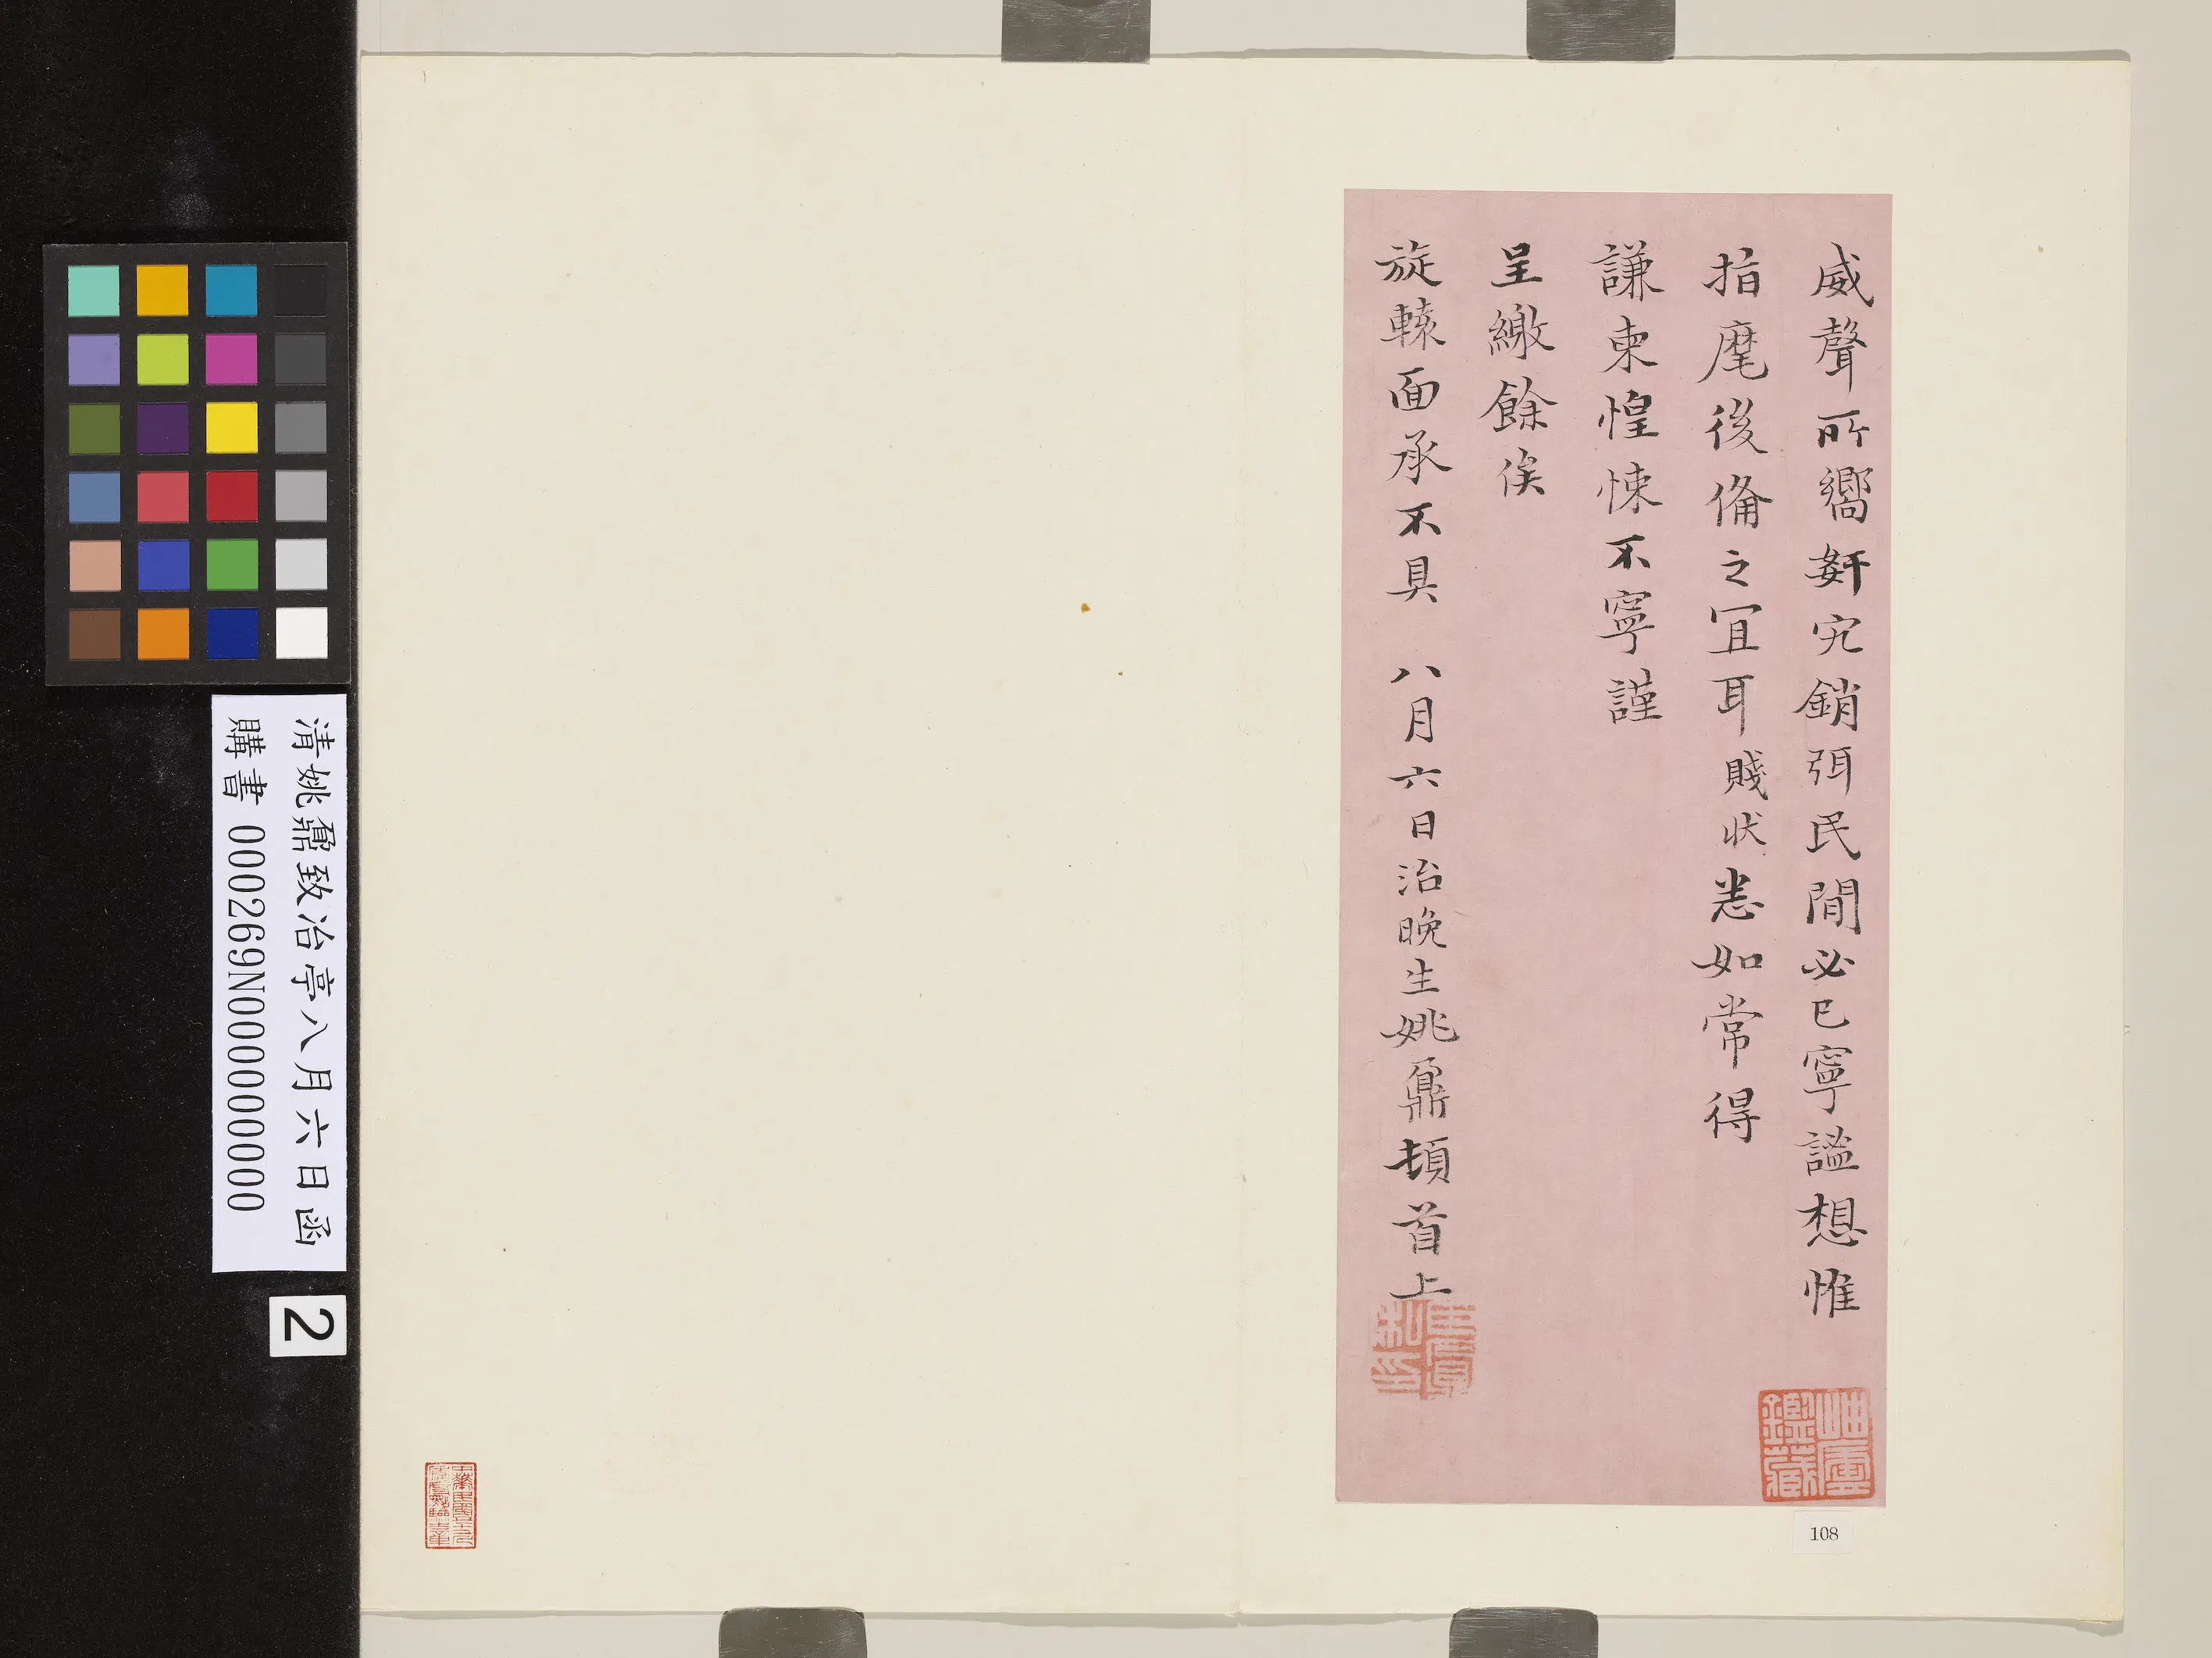 威聲所嚮姧宄銷弭民間必已寧謐想惟
指麾後備之宜耳賤狀恙如常得
謙柬惶悚不寧謹
呈繳餘俟
旋轅面承不具 八月六日治晚生姚鼐頓首上
岫廬鑑藏
108
清姚鼐致冶亭八月六日函
購書 000269N000000000
2